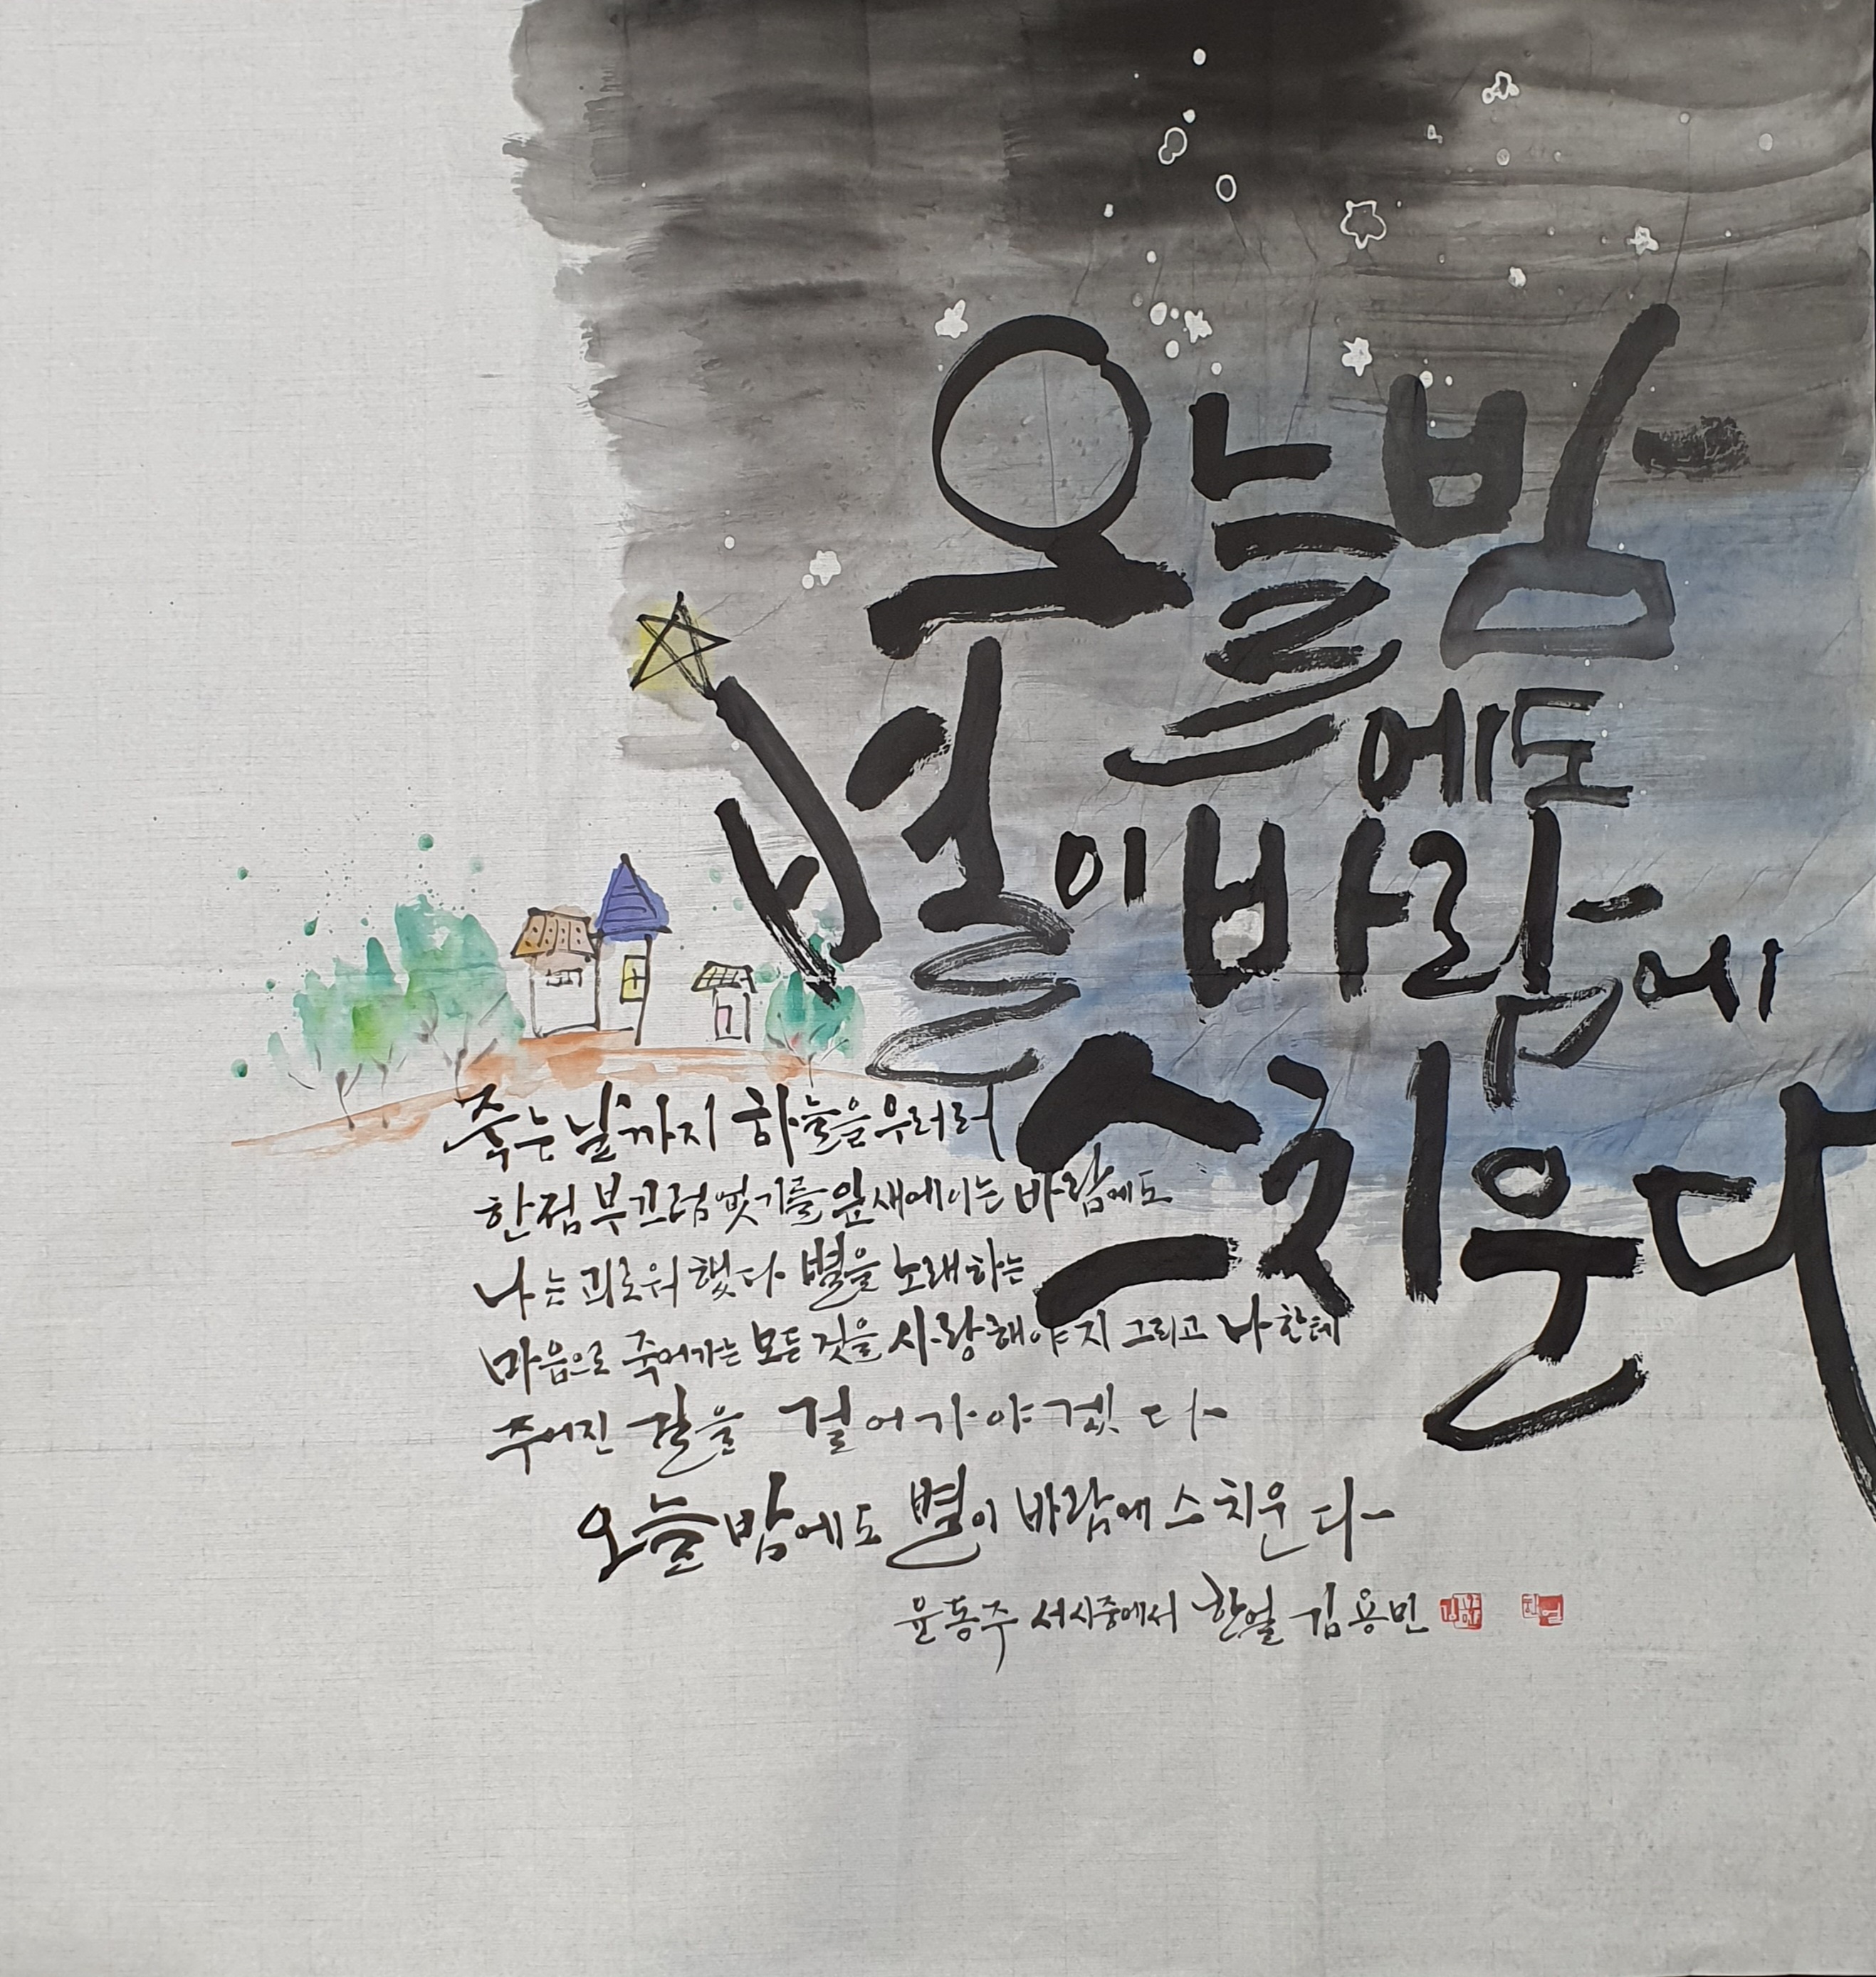 오늘밤
에도
별이 바람에
스치운다
죽는 날까지 하늘을 우러러
한점 부끄럼 없기를 잎새에 이는 바람에도
나는 괴로워 했다 별을 노래하는
마음으로 죽어가는 모든 것을 사랑해야지 그리고 나한테
주어진 길을 걸어가야겠다
오늘밤에도 별이 바람에 스치운다
윤동주 서시중에서 한얼 김용민